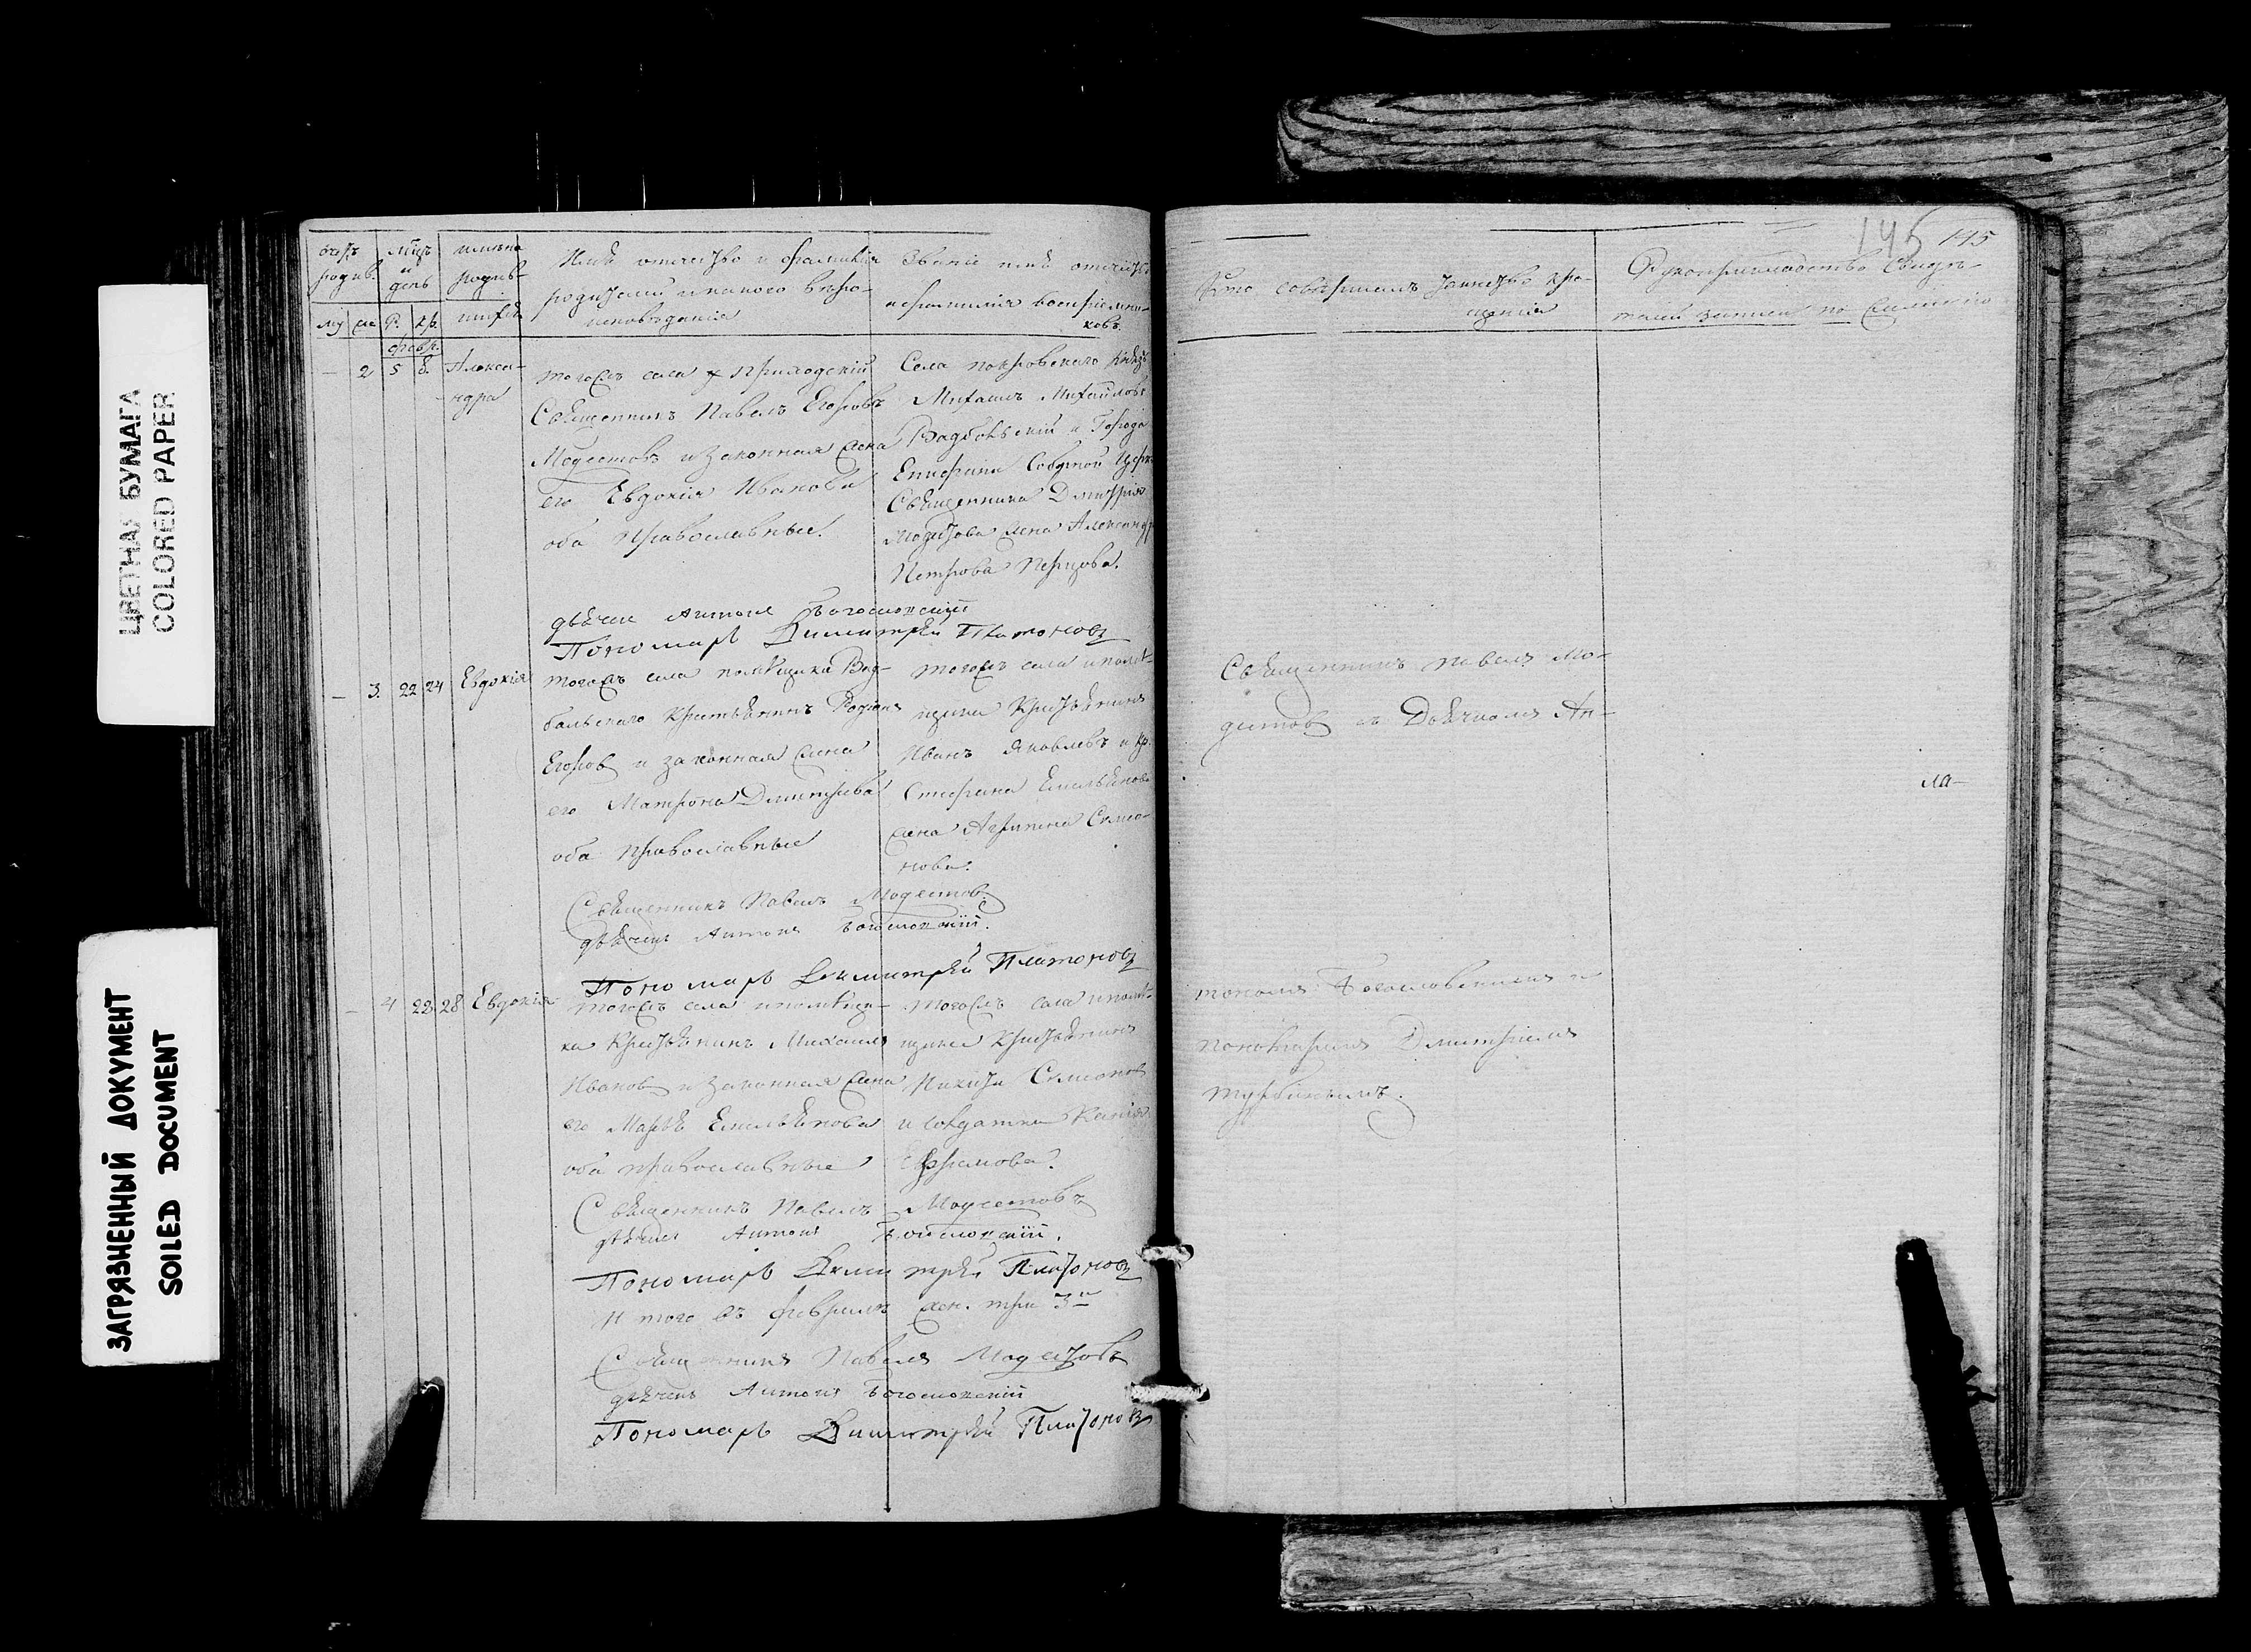 ЦВЕТНАЯ БУМАГА
COLORED PAPER
ЗАГРЯЗНЕННЫЙ ДОКУМЕНТ
SOILED DOCUMENT
мѣсц. и день
Имя отечество и фамилія родителей и какого вѣро-
исповѣданія
Званіе имя отечество
и фамилія воспріемни-
ковъ.
му же Р. кр.
февр.
2 5 8. Алекса-
ндра
тогожъ села приходскій
Священникъ Павелъ Егоровъ
Модестовъ и законная жена
его Евдокія Иванова
оба Православные.
Села покровскаго Князь
Михаилъ Михайловъ
Вадбольскій и Города
Епифани Соборной Церкви
Священника Дмитрія
жена Александра
Петрова Перцова.
дьячекъ Антонъ Богословскій
Пономарь Димитрій Платоновъ
3. 22 24 Евдокія
тогожъ села помѣщика Вад-
больскаго Крестьянинъ Родіонъ
Егоровъ и законная жена
его Матрона Дмитріева
оба православные
тогожъ села и помѣ-
щика Крестьянинъ
Иванъ Яковлевъ и кр.
Стефана Емельянова
жена Агрипена Симо-
нова.
Священникъ Павелъ Модестовъ
дьячекъ Антонъ Богословскій.
Пономарь Димитрій Платоновъ
4 22 28 Евдокія
тогожъ села и помѣщи-
ка Крестьянинъ Михаилъ
Ивановъ и законная жена
его Марья Емельянова
оба православные
тогожъ села и помѣ-
щика Крестьянинъ
Никита Симоновъ
и солдатка
Ефремова.
Священникъ Павелъ Модестовъ
дьячекъ Антонъ Богословскій.
Пономарь Димитрій Платоновъ
Итого въ февралѣ жен. три 3
Священникъ Павелъ Модестовъ
дьячекъ Антонъ Богословскій
Пономарь Димитрій Платоновъ
145 145
Кто совершалъ таинство кре-
щенія
Рукоприкладство свидѣ-
телей записи по желанію
Священникъ Павелъ Мо-
дестовъ съ Дьячкомъ Ан-
ла-
тономъ Богословскимъ и
пономаремъ Дмитріемъ